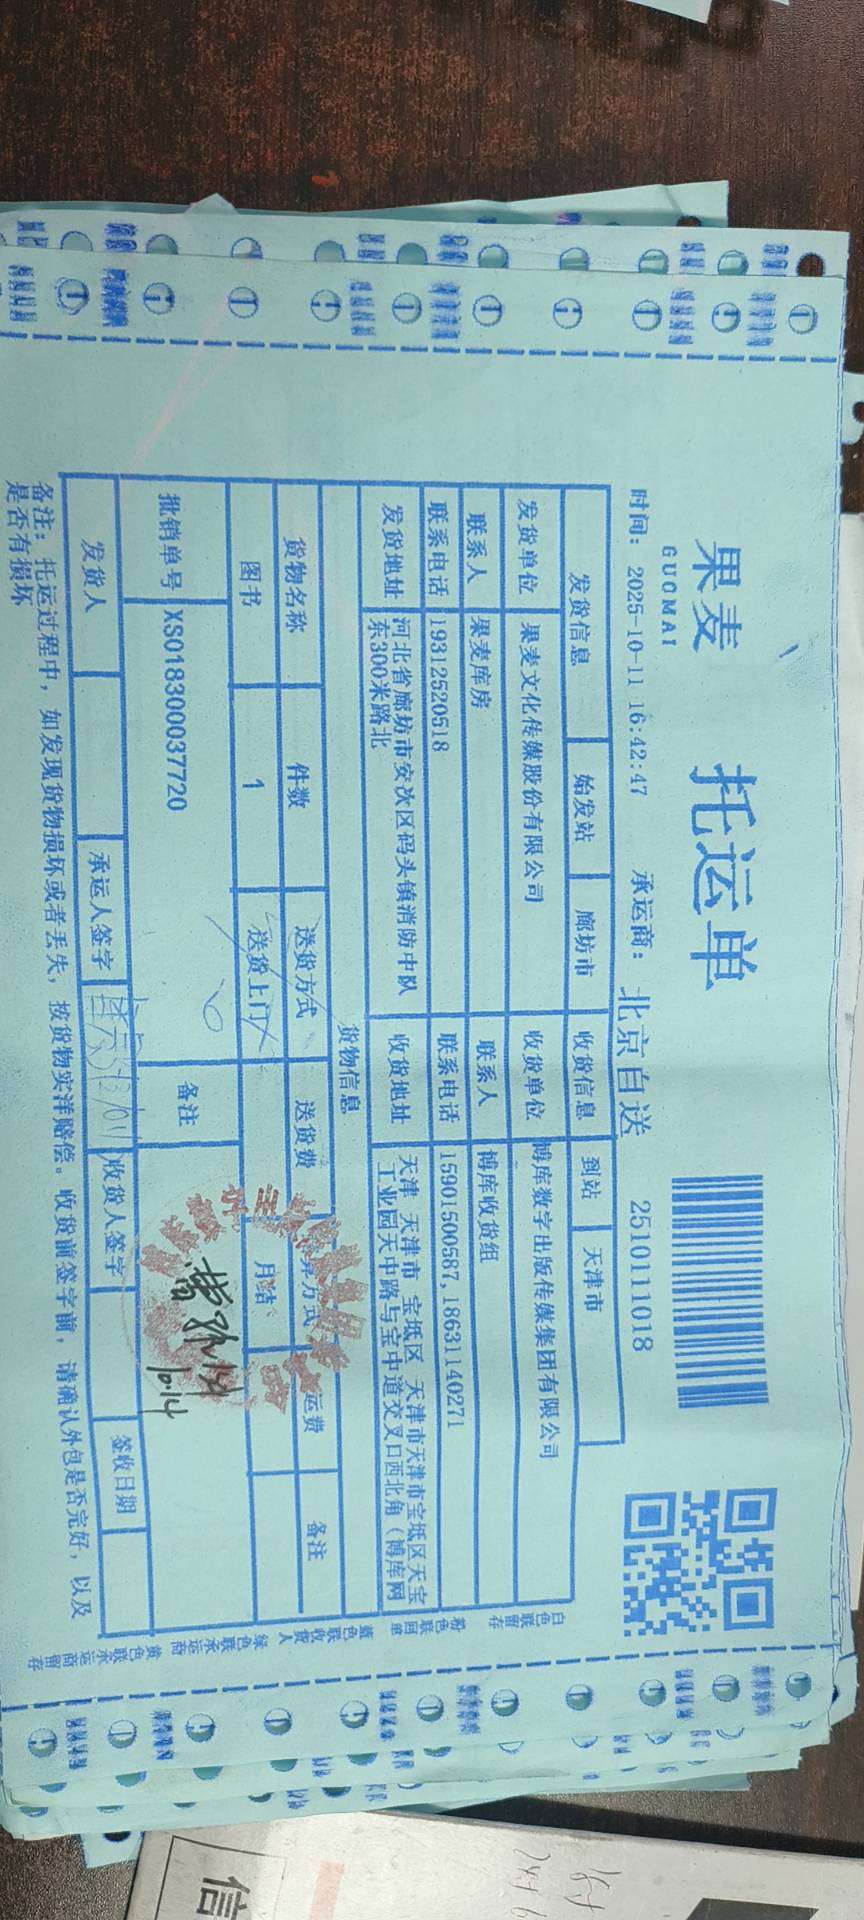 果麦
GUOMAI
托运单
时间: 2025-10-11 16:42:47 承运商: 北京自送 2510111018
发货信息 始发站 廊坊市 收货信息 到站 天津市
发货单位 果麦文化传媒股份有限公司 收货单位 博库数字出版传媒集团有限公司
联系人 果麦库房 联系人 博库收货组
联系电话 19312520518 联系电话 15901500587,18631140271
发货地址 河北省廊坊市安次区码头镇消防中队东300米路北 收货地址 天津 天津市 宝坻区 天津市天津市宝坻区天宝工业园天中路与宝中道交叉口西北角(博库网
货物信息
货物名称 件数 送货方式 送货费 算方式 运费 备注
图书 1 送货上门 月结
批销单号 XS018300037720 备注
10.14
发货人 承运人签字 收货人签字 签收日期
备注: 托运过程中, 如发现货物损坏或者丢失, 按货物实洋赔偿。收货前签字前, 请确认外包是否完好, 以及
是否有损坏
白色联留存 粉色联回重 蓝色联收货人 绿色联承运商 黄色联承运商留存
信